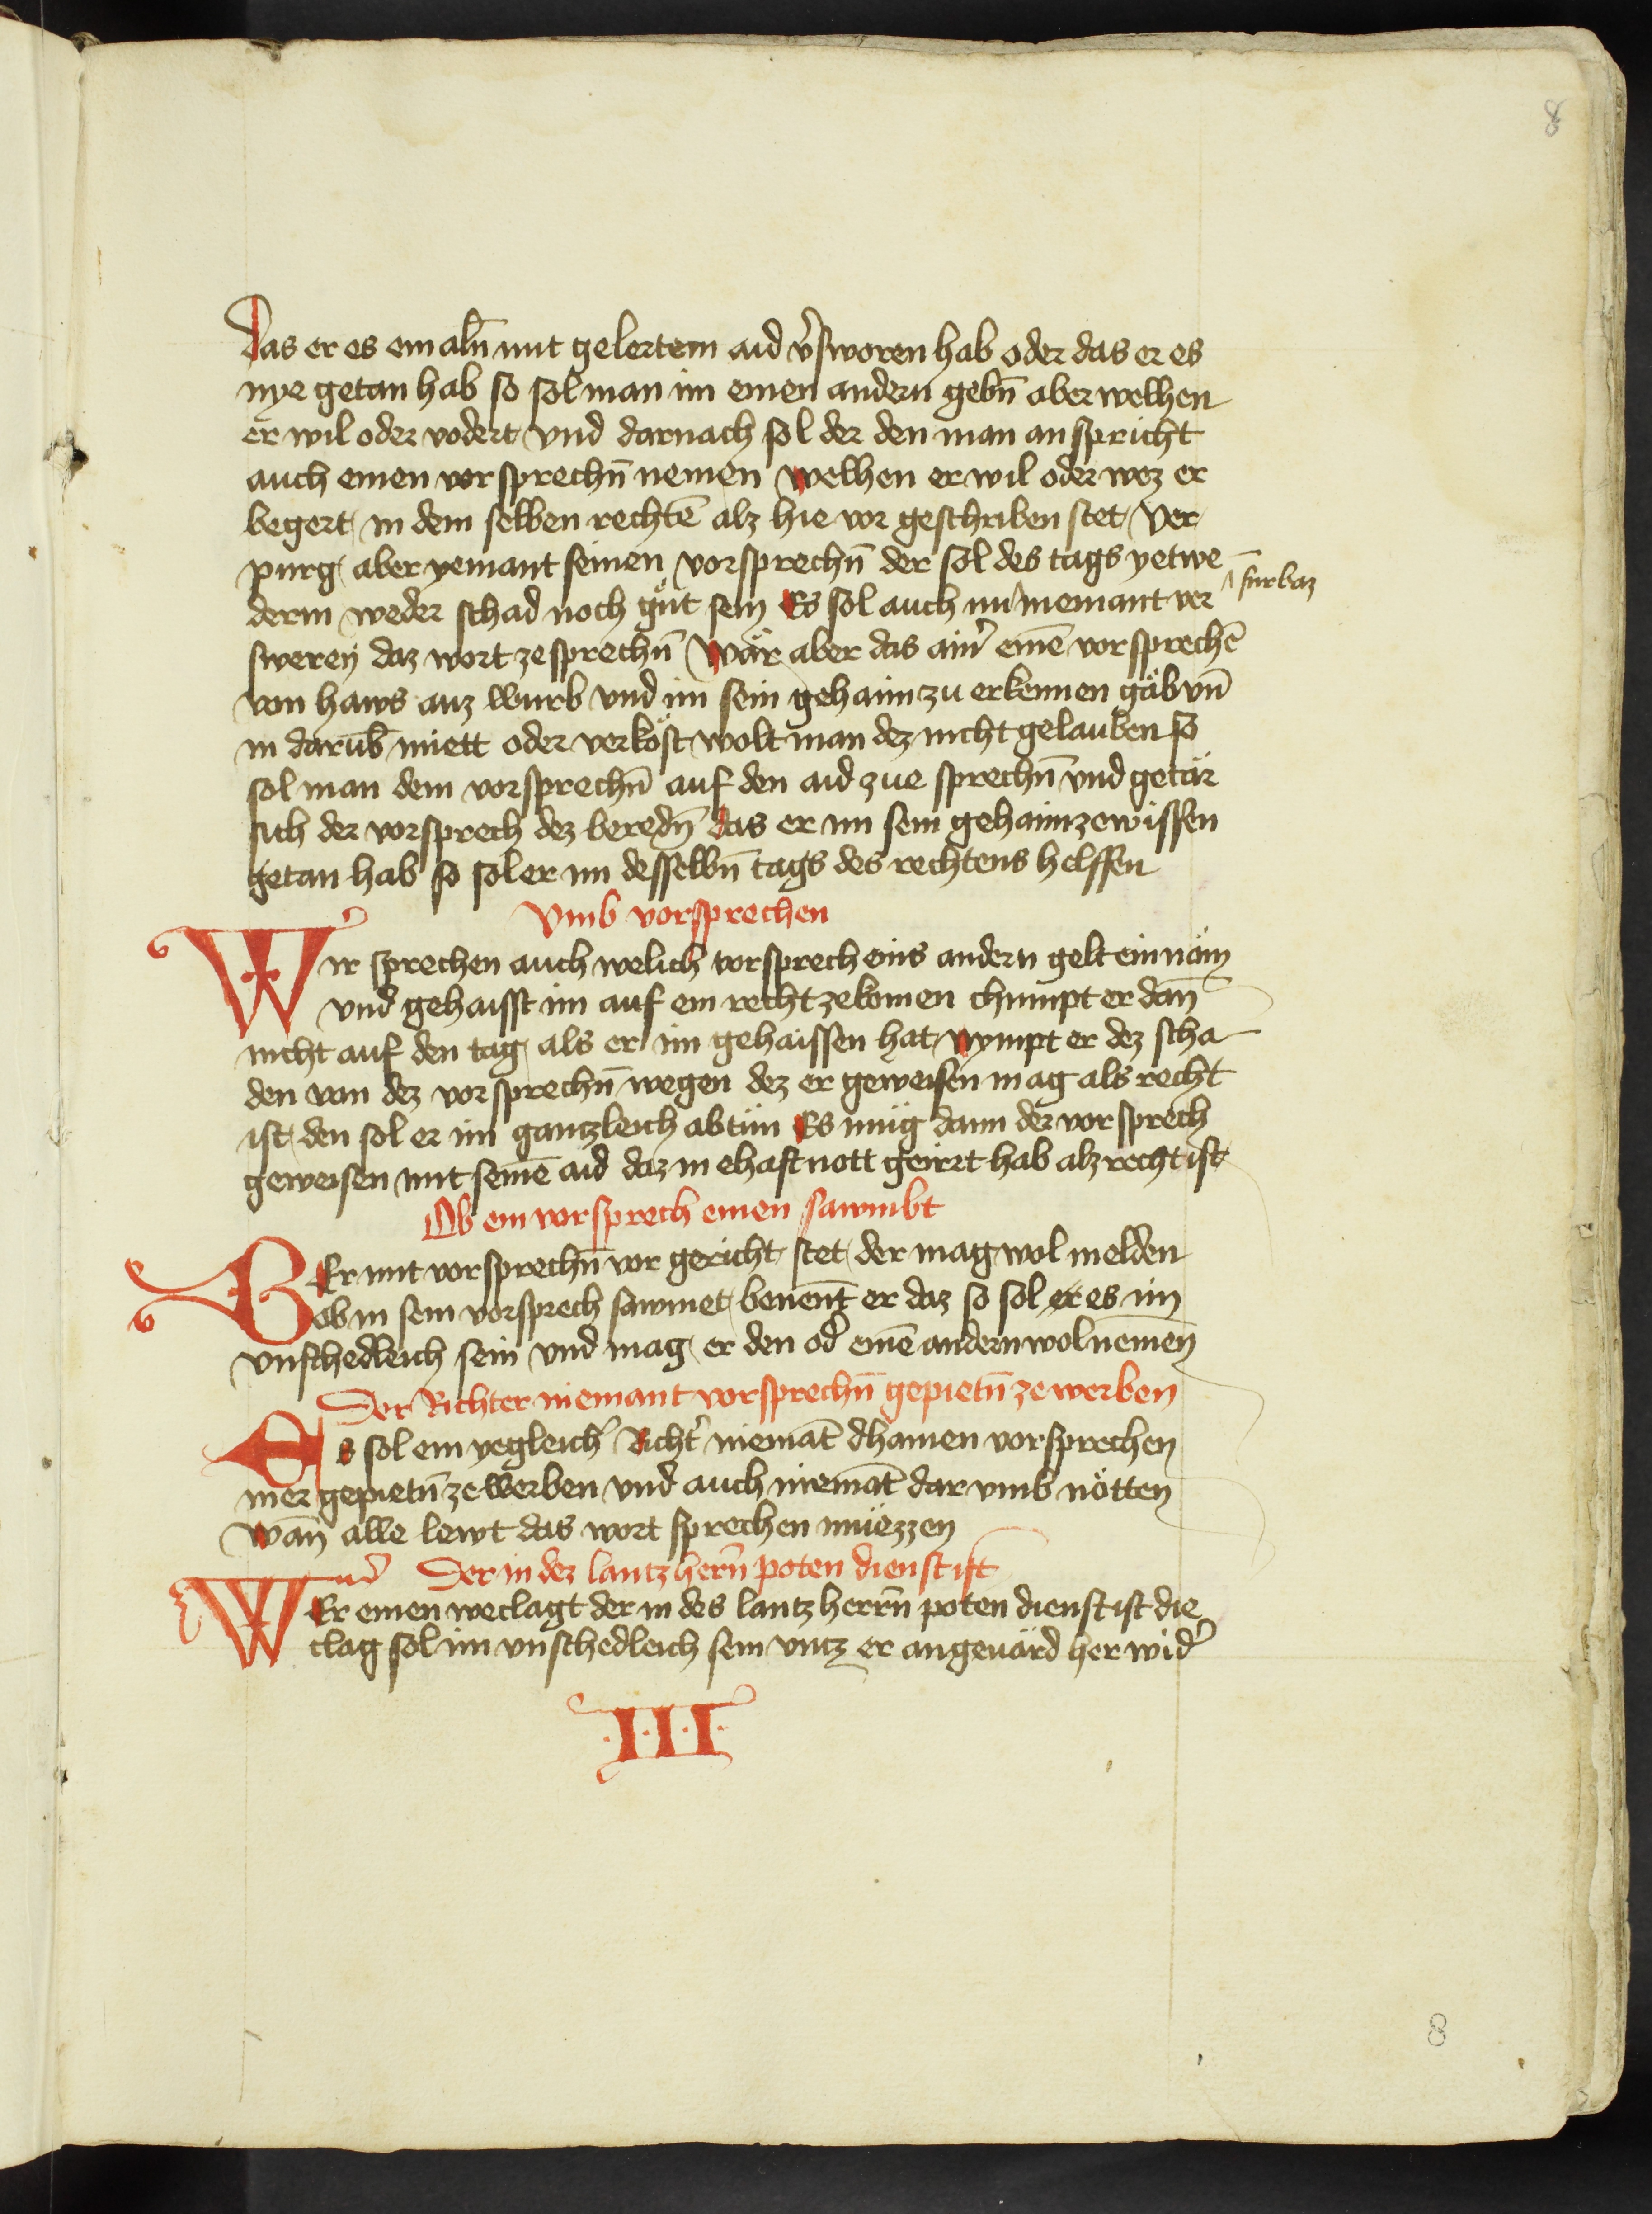 8
Das er es ein alñ mit gelertem aid v̾sworen hab oder das er es
nye getan hab so sol man im einen andern gebn̄ aber welhen
er wil oder vodert vnd darnach sol der den man an spricht
auch einen vorsprechn̄ nemen welhen er wil oder wez er
begert in dem selben rechtē alz hie vor geschriben stet Ver
purg aber yemant seinen vorsprechn̄ der sol des tags yetwe
derm weder schad noch gůt sein Es sol auch nu niemant ver
furbaz
swerñ daz wort ze sprechn̄ Wär aber das ain̾ einē vorsprechē
von haws auz wurb vnd im sein gehaim zu erkennen gäb vn̄
in darūb miett oder verköst wolt man dez nicht gelauben so
sol man dem vorsprechn̄ auf den aid zue sprechn̄ vnd getär
sich der vorsprech dez beredn̄ das er im sein gehaim ze wissen
getan hab so sol er im desselbn̄ tags des rechtens helffen
Vmb vorsprechen
Wir sprechen auch welich vorsprech eins andern gelt ein näm
vnd gehaisst im auf ein recht ze komen chumpt er dan̄
nicht auf den tag als er im gehaissen hat nympt er dez scha
den von dez vorsprechn̄ wegen dez er geweisen mag als recht
ist den sol er im gantzleich ab tün Es müg dann der vorsprech
geweisen mit seinē aid daz in ehaft nott geirrt hab alz recht ist
Ob ein vorsprech einen sawmbt
Er mit vorsprechn̄ vor gericht stet der mag wol melden
ob in sein vorsprech sawmet benent er daz so sol er es im
vnschedleich sein vnd mag er den od̾ einē andern wol nemen
Der Richter niemant vorsprechn̄ gepietn̄ ze werben
Es sol ein yegleich Richt̾ niemāt dhainen vorsprechen
mer gepietn̄ ze werben vnd auch niemāt dar vmb nötten
Wan̄ alle lewt das wort sprechen müezzen
Der in dez lantzhern̄ poten dienst ist
WEr einen weclagt der in des lantzherrn̄ poten dienst ist die
clag sol im vnschedleich sein vntz er angeuärd her wid̾
·I·I·I·
8